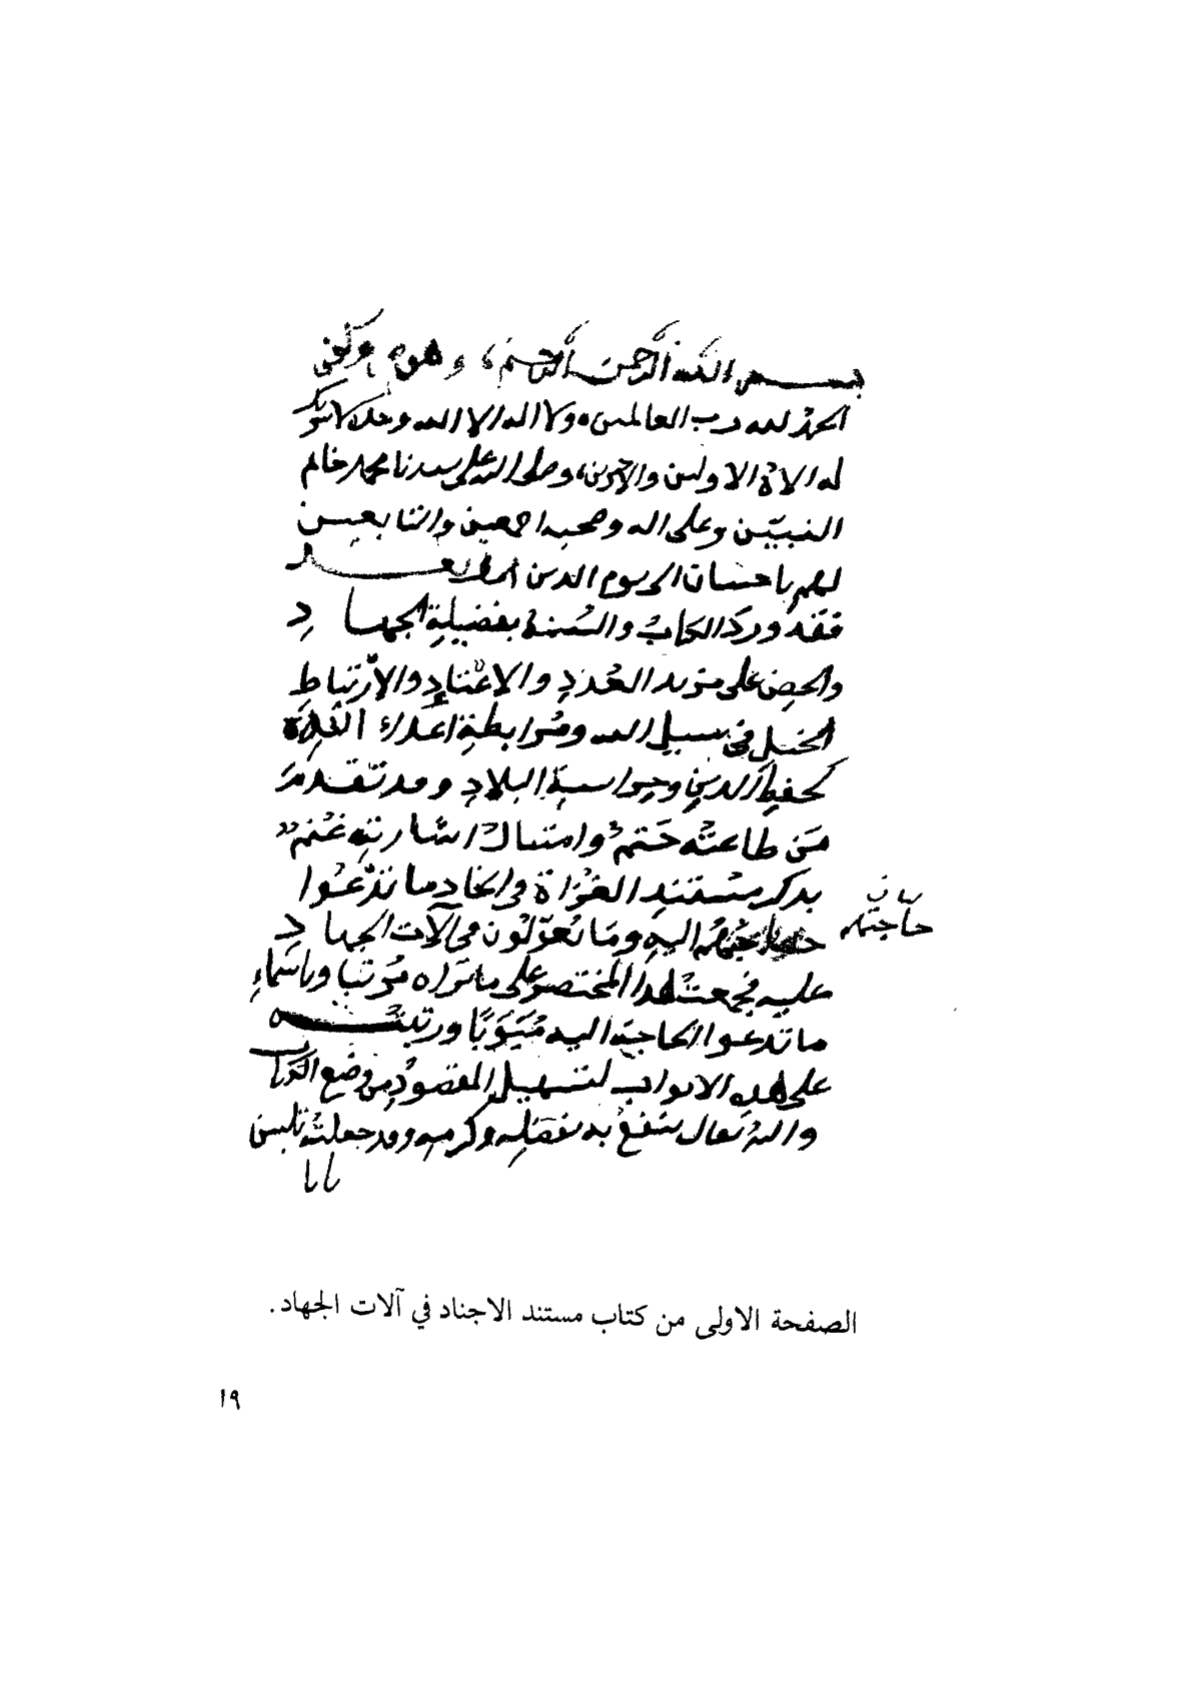 بسم الله الرحمن الرحيم، وهو
الحمد لله رب العالمين ولا اله الا الله وحده لا شريك
له الاه الاولين والاخرين، وصلى الله على سيدنا محمد خاتم
النبيين وعلى اله وصحبه اجمعين والتابعين
لهم باحسان الى يوم الدين اما بعد
فقد ورد الكتاب والسنة بفضيلة الجهاد
والحض على مزيد العدد والاعتداد والارتباط
الخيل في سبيل الله ومرابطة اعداء
لحفظ الدين وحراسة البلاد وقد تقدم
من طاعته حتم وامتثال اشارته غنم
بذكر مستند الغزاة في اتخاذ ما تدعوا
بيان
اليه وما يعولون في الآت الجهاد
حاجتهم
عليه فجمعت هذا المختصر على ما تراه مرتبا وباسماء
ما تدعوا الحاجة اليه مبوبا ورتبته
على هذه الابواب لتسهيل المقصود من وضع الكتاب
والله تعالى ينفع به بفضله وكرمه وقد جعلته ثلثين
بابا
الصفحة الاولى من كتاب مستند الاجناد في آلات الجهاد.
١٩